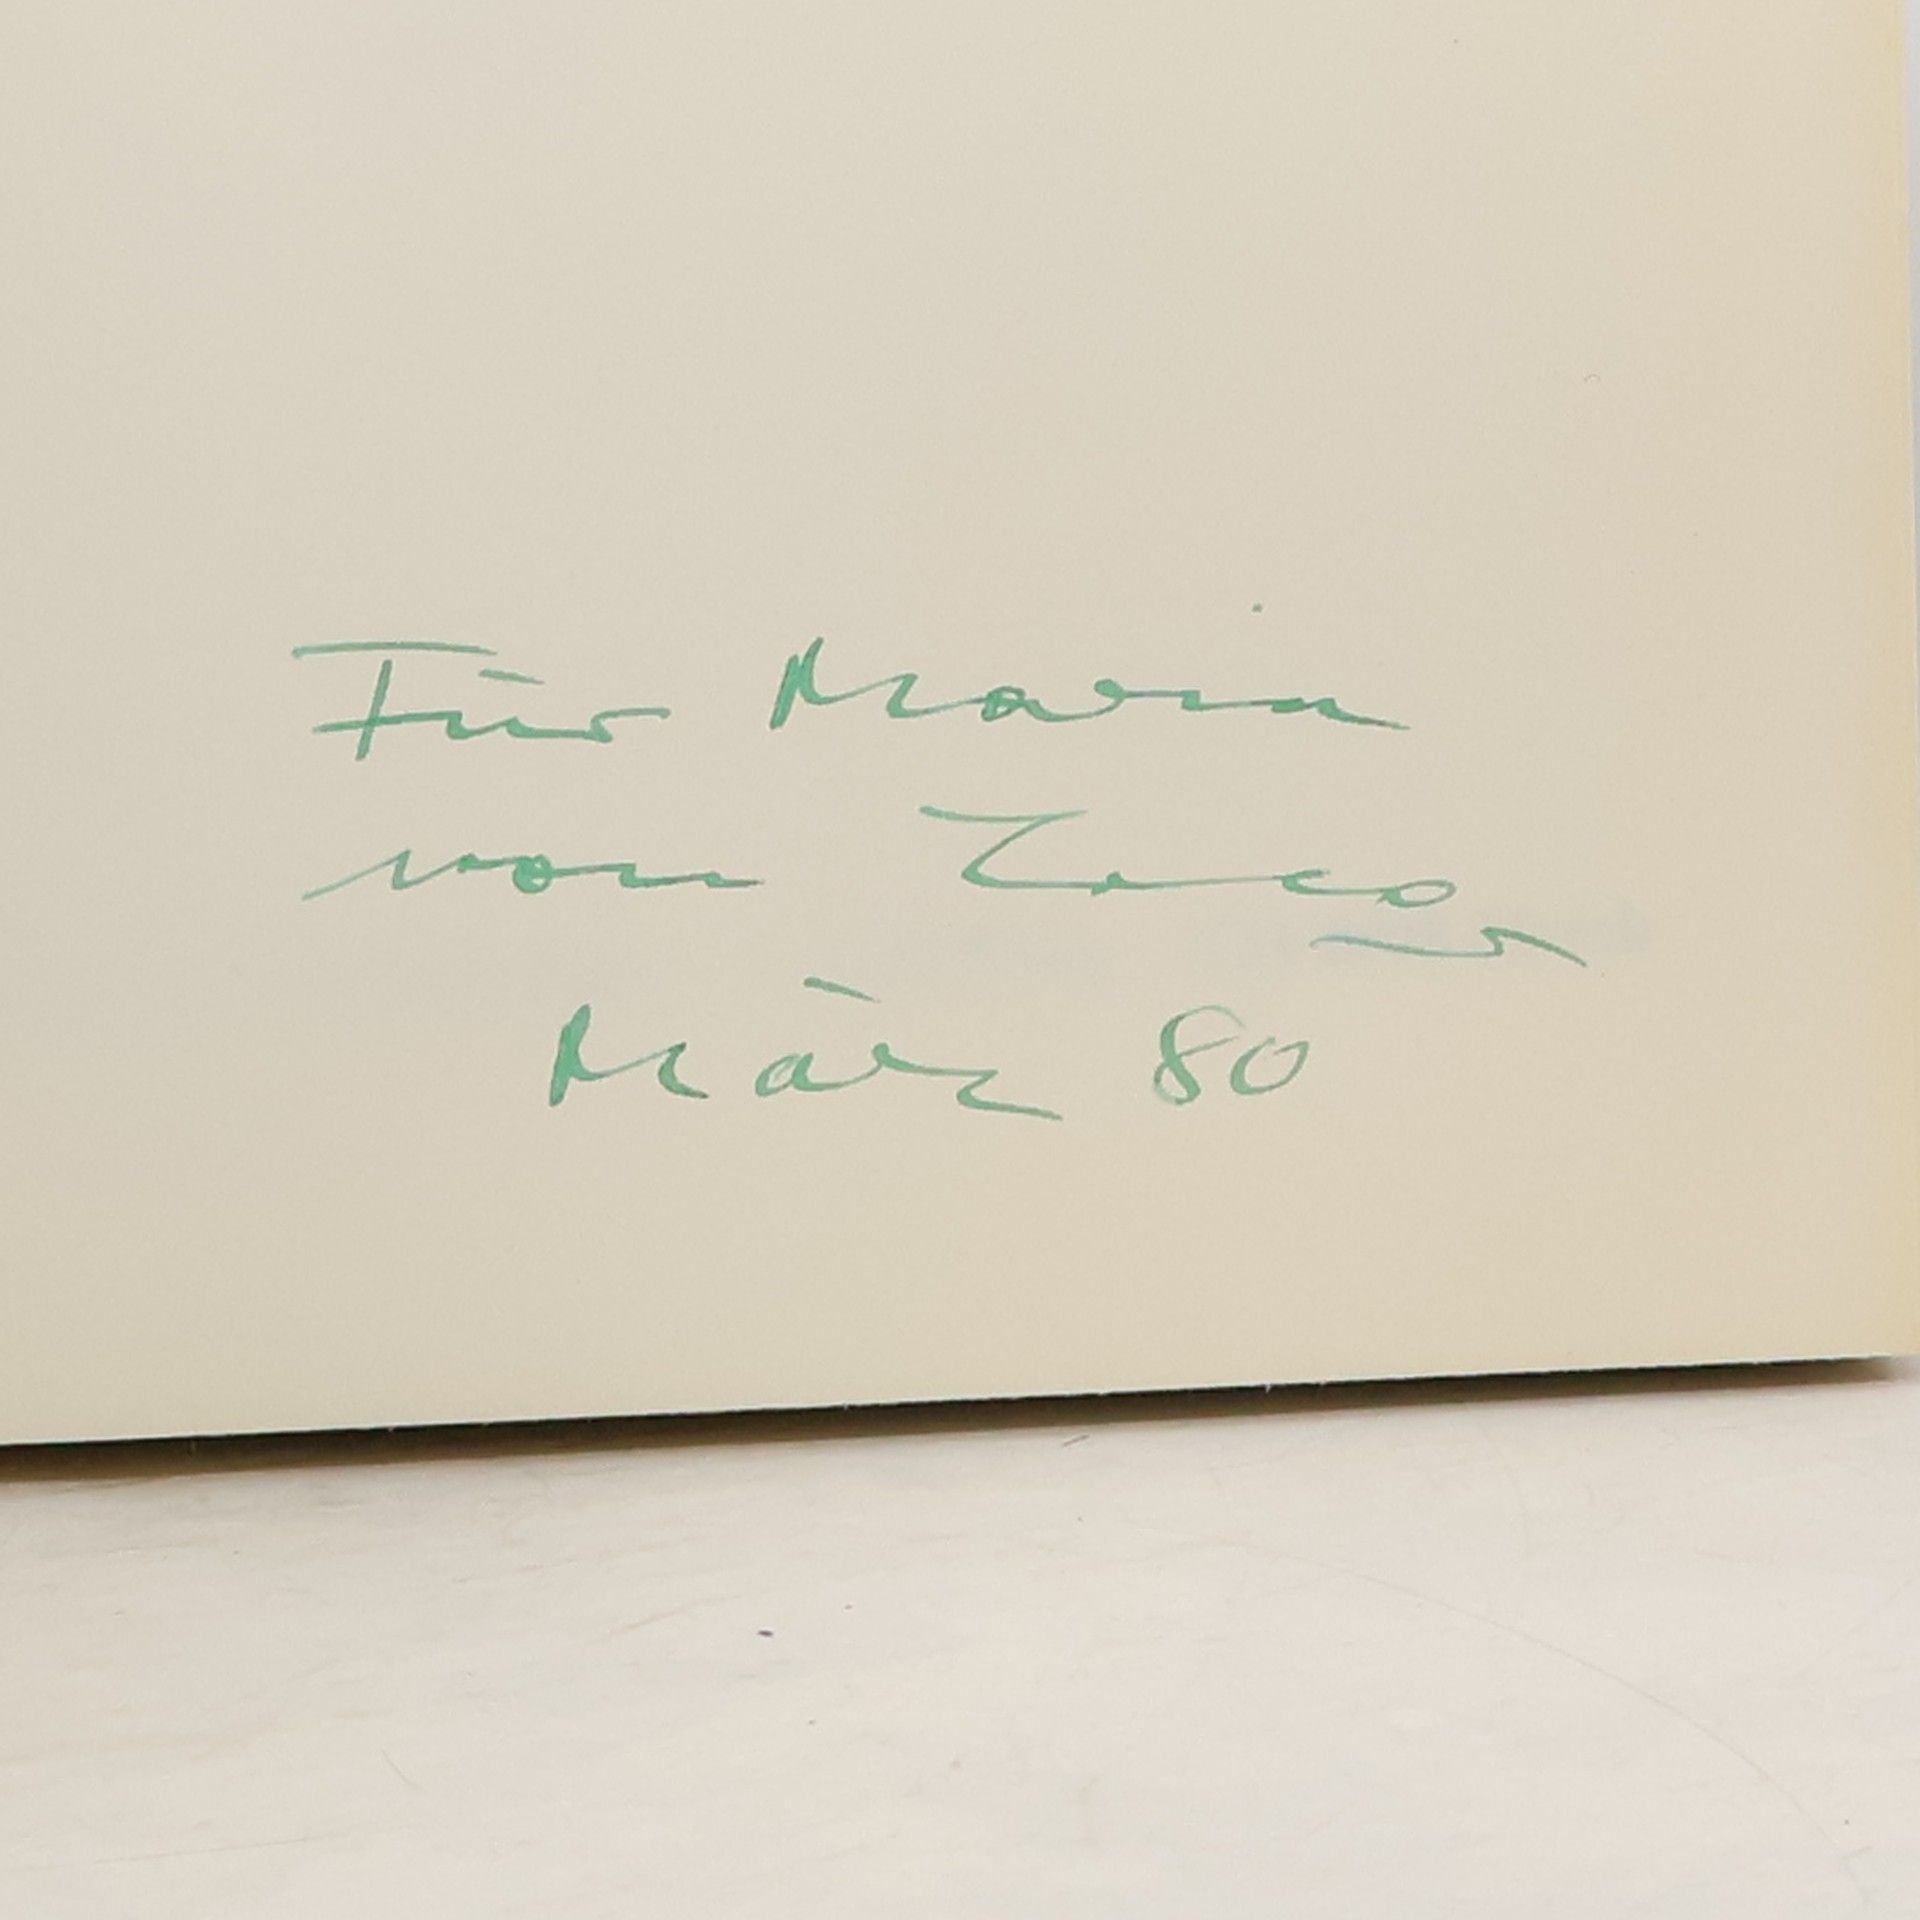 Für Maria
von
März 80